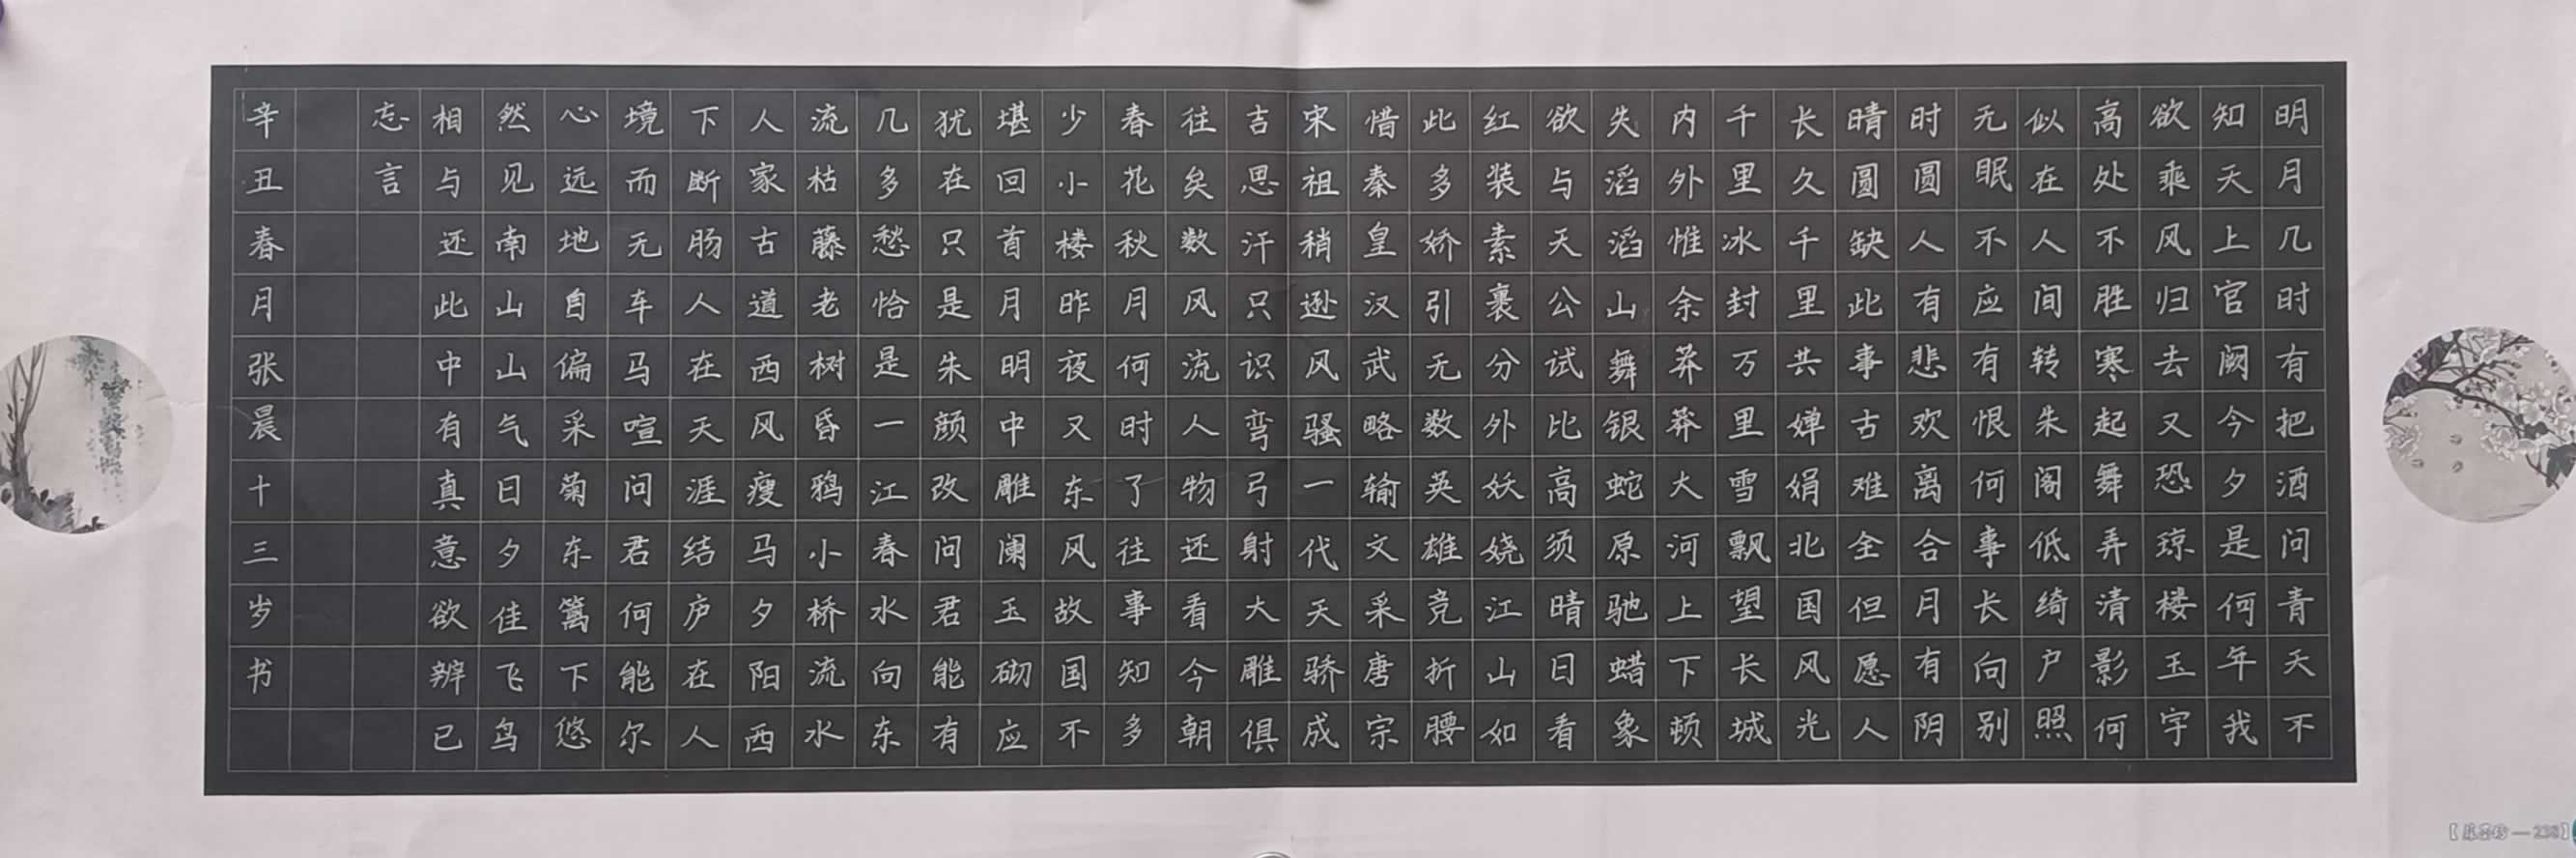 明月几时有把酒问青天不
知天上官阙今夕是何年我
欲乘风归去又恐琼楼玉宇
高处不胜寒起舞弄清影何
似在人间转朱阁低绮户照
无眠不应有恨何事长向别
时圆人有悲欢离合月有阴
晴圆缺此事古难全但愿人
长久千里共婵娟北国风光
千里冰封万里雪飘望长城
内外惟余莽莽大河上下顿
失滔滔山舞银蛇原驰蜡象
欲与天公试比高须晴日看
红装素裹分外妖娆江山如
此多娇引无数英雄竞折腰
惜秦皇汉武略输文采唐宗
宋祖稍逊风骚一代天骄成
吉思汗只识弯弓射大雕俱
往矣数风流人物还看今朝
春花秋月何时了往事知多
少小楼昨夜又东风故国不
堪回首月明中雕阑玉砌应
犹在只是朱颜改问君能有
几多愁恰是一江春水向东
流枯藤老树昏鸦小桥流水
人家古道西风瘦马夕阳西
下断肠人在天涯结庐在人
境而无车马喧问君何能尔
心远地自偏采菊东篱下悠
然见南山山气日夕佳飞鸟
相与还此中有真意欲辨已
忘言
辛丑春月张晨十三岁书